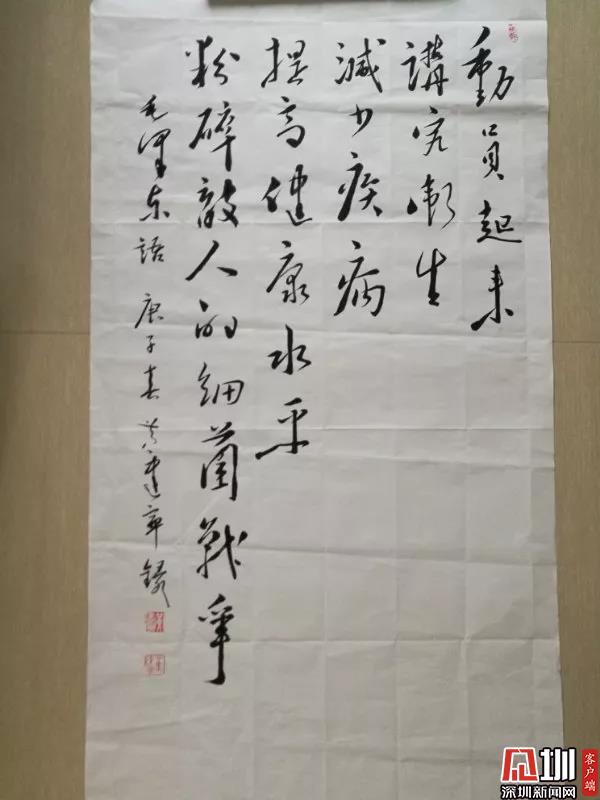 動員起来
講究衛生
減少疾病
提高健康水平
粉碎敵人的細菌戰爭
毛澤东語 庚子春 黄建章 録
深圳新闻网
客户端